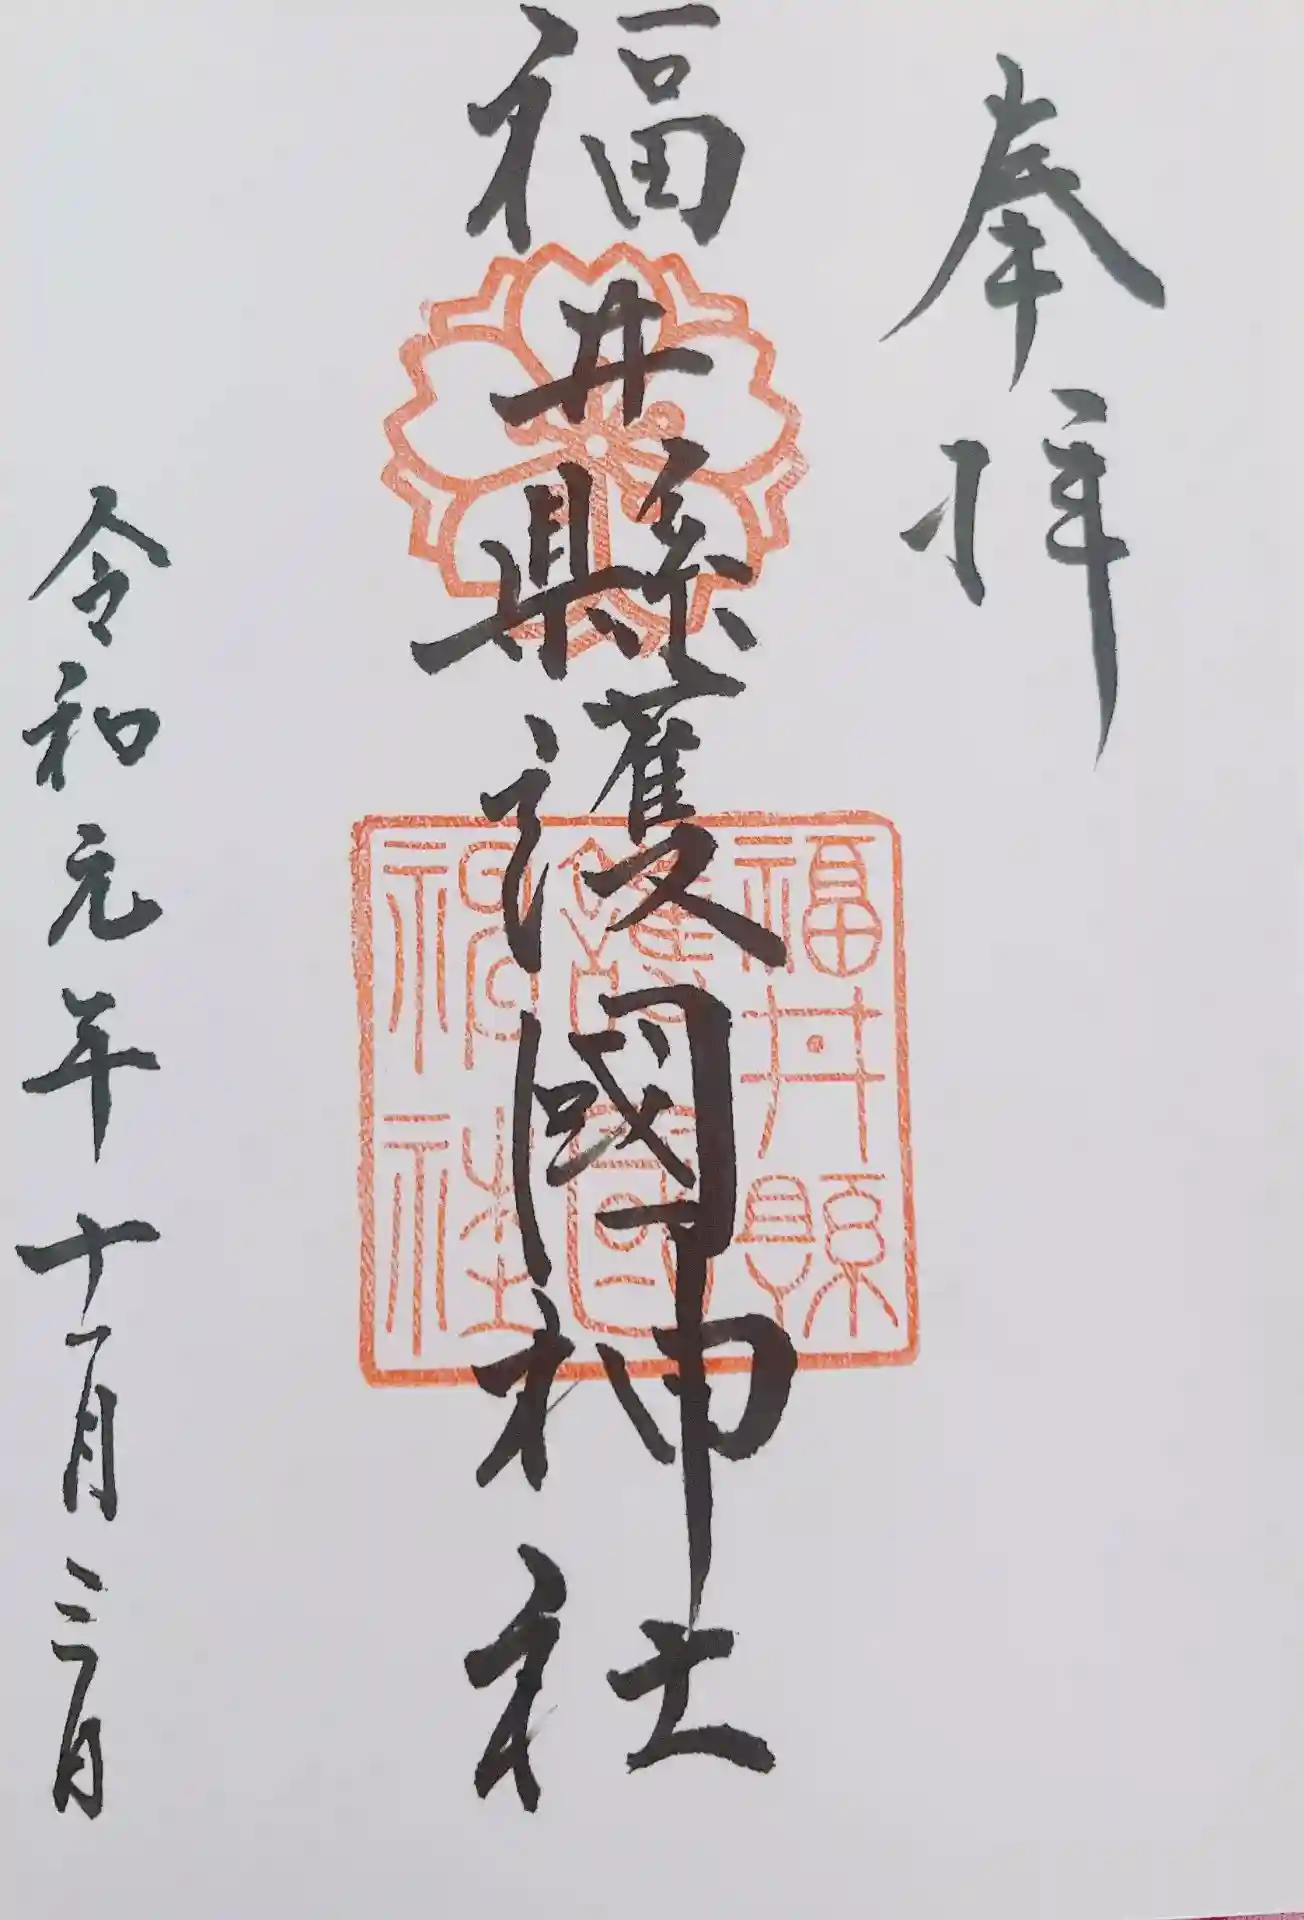 奉拝
福井縣護國神社
福井縣
護國
神社
令和元年十一月三日